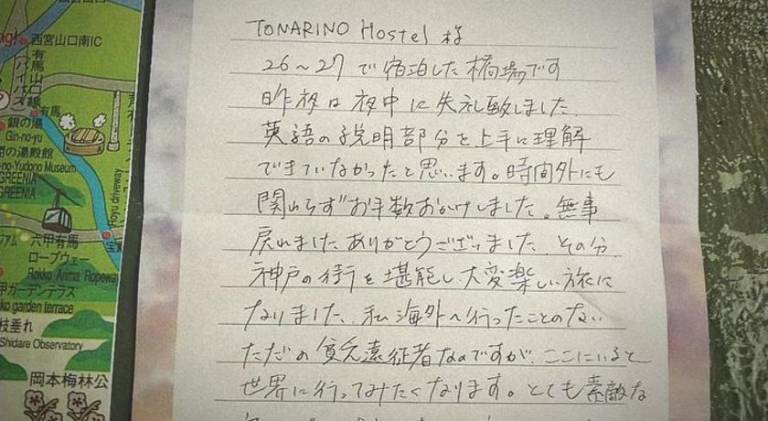 西宮山口南IC
有馬
バイパス
山口線
有馬
銀の湯
Gin-no-yu
の湯殿館
o-no-Yudono Museum
GREENIA
GREENIA
六甲有馬
ロープウェー
Rokko Arima Ropeway
甲ガーデンテラス
ko garden terrace
枝垂れ
Shidare Observatory
岡本梅林公
TONARINO Hostel 様
26～27 で宿泊した橋場です
昨夜は夜中に失礼致しました、
英語の説明部分を上手に理解
できていなかったと思います。時間外にも
関わらずお手数おかけしました。無事
戻れましたありがとうございました、その分
神戸の街を堪能し、大変楽しい旅に
なりました、私海外へ行ったことのない
ただの貧乏遠征者なのですが、ここにいると
世界に行ってみたくなります。とても素敵な